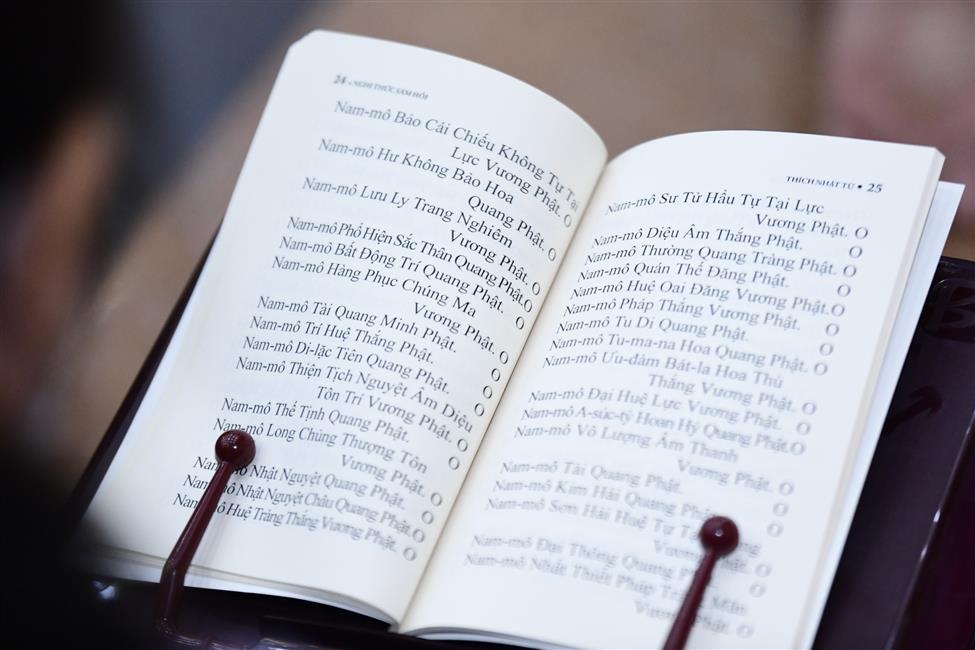 24 • NGHI THỨC SÁM HỐI
Nam-mô Bảo Cái Chiếu Không Tự Tại
Lực Vương Phật. O
Nam-mô Hư Không Bảo Hoa
Quang Phật. O
Nam-mô Lưu Ly Trang Nghiêm
Vương Phật. O
Nam-mô Phổ Hiện Sắc Thân Quang Phật. O
Nam-mô Bất Động Trí Quang Phật. O
Nam-mô Hàng Phục Chúng Ma
Vương Phật. O
Nam-mô Tài Quang Minh Phật. O
Nam-mô Trí Huệ Thắng Phật. O
Nam-mô Di-lặc Tiên Quang Phật. O
Nam-mô Thiện Tịch Nguyệt Âm Diệu
Tôn Trí Vương Phật. O
Nam-mô Thế Tịnh Quang Phật. O
Nam-mô Long Chủng Thượng Tôn
Vương Phật. O
Nam-mô Nhật Nguyệt Quang Phật. O
Nam-mô Nhật Nguyệt Châu Quang Phật. O
Nam-mô Huệ Tràng Thắng Vương Phật. O
THÍCH NHẬT TỪ • 25
Nam-mô Sư Tử Hẩu Tự Tại Lực
Vương Phật. O
Nam-mô Diệu Âm Thắng Phật. O
Nam-mô Thường Quang Tràng Phật. O
Nam-mô Quán Thế Đăng Phật. O
Nam-mô Huệ Oai Đăng Vương Phật. O
Nam-mô Pháp Thắng Vương Phật. O
Nam-mô Tu Di Quang Phật. O
Nam-mô Tu-ma-na Hoa Quang Phật. O
Nam-mô Ưu-đàm Bát-la Hoa Thù
Thắng Vương Phật. O
Nam-mô Đại Huệ Lực Vương Phật. O
Nam-mô A-súc-tỳ Hoan Hỷ Quang Phật. O
Nam-mô Vô Lượng Âm Thanh
Vương Phật. O
Nam-mô Tài Quang Phật. O
Nam-mô Kim Hải Quang Phật. O
Nam-mô Sơn Hải Huệ Tự Tại Thông
Vương Phật. O
Nam-mô Đại Thông Quang Phật. O
Nam-mô Nhất Thiết Pháp Tràng Mãn
Vương Phật. O